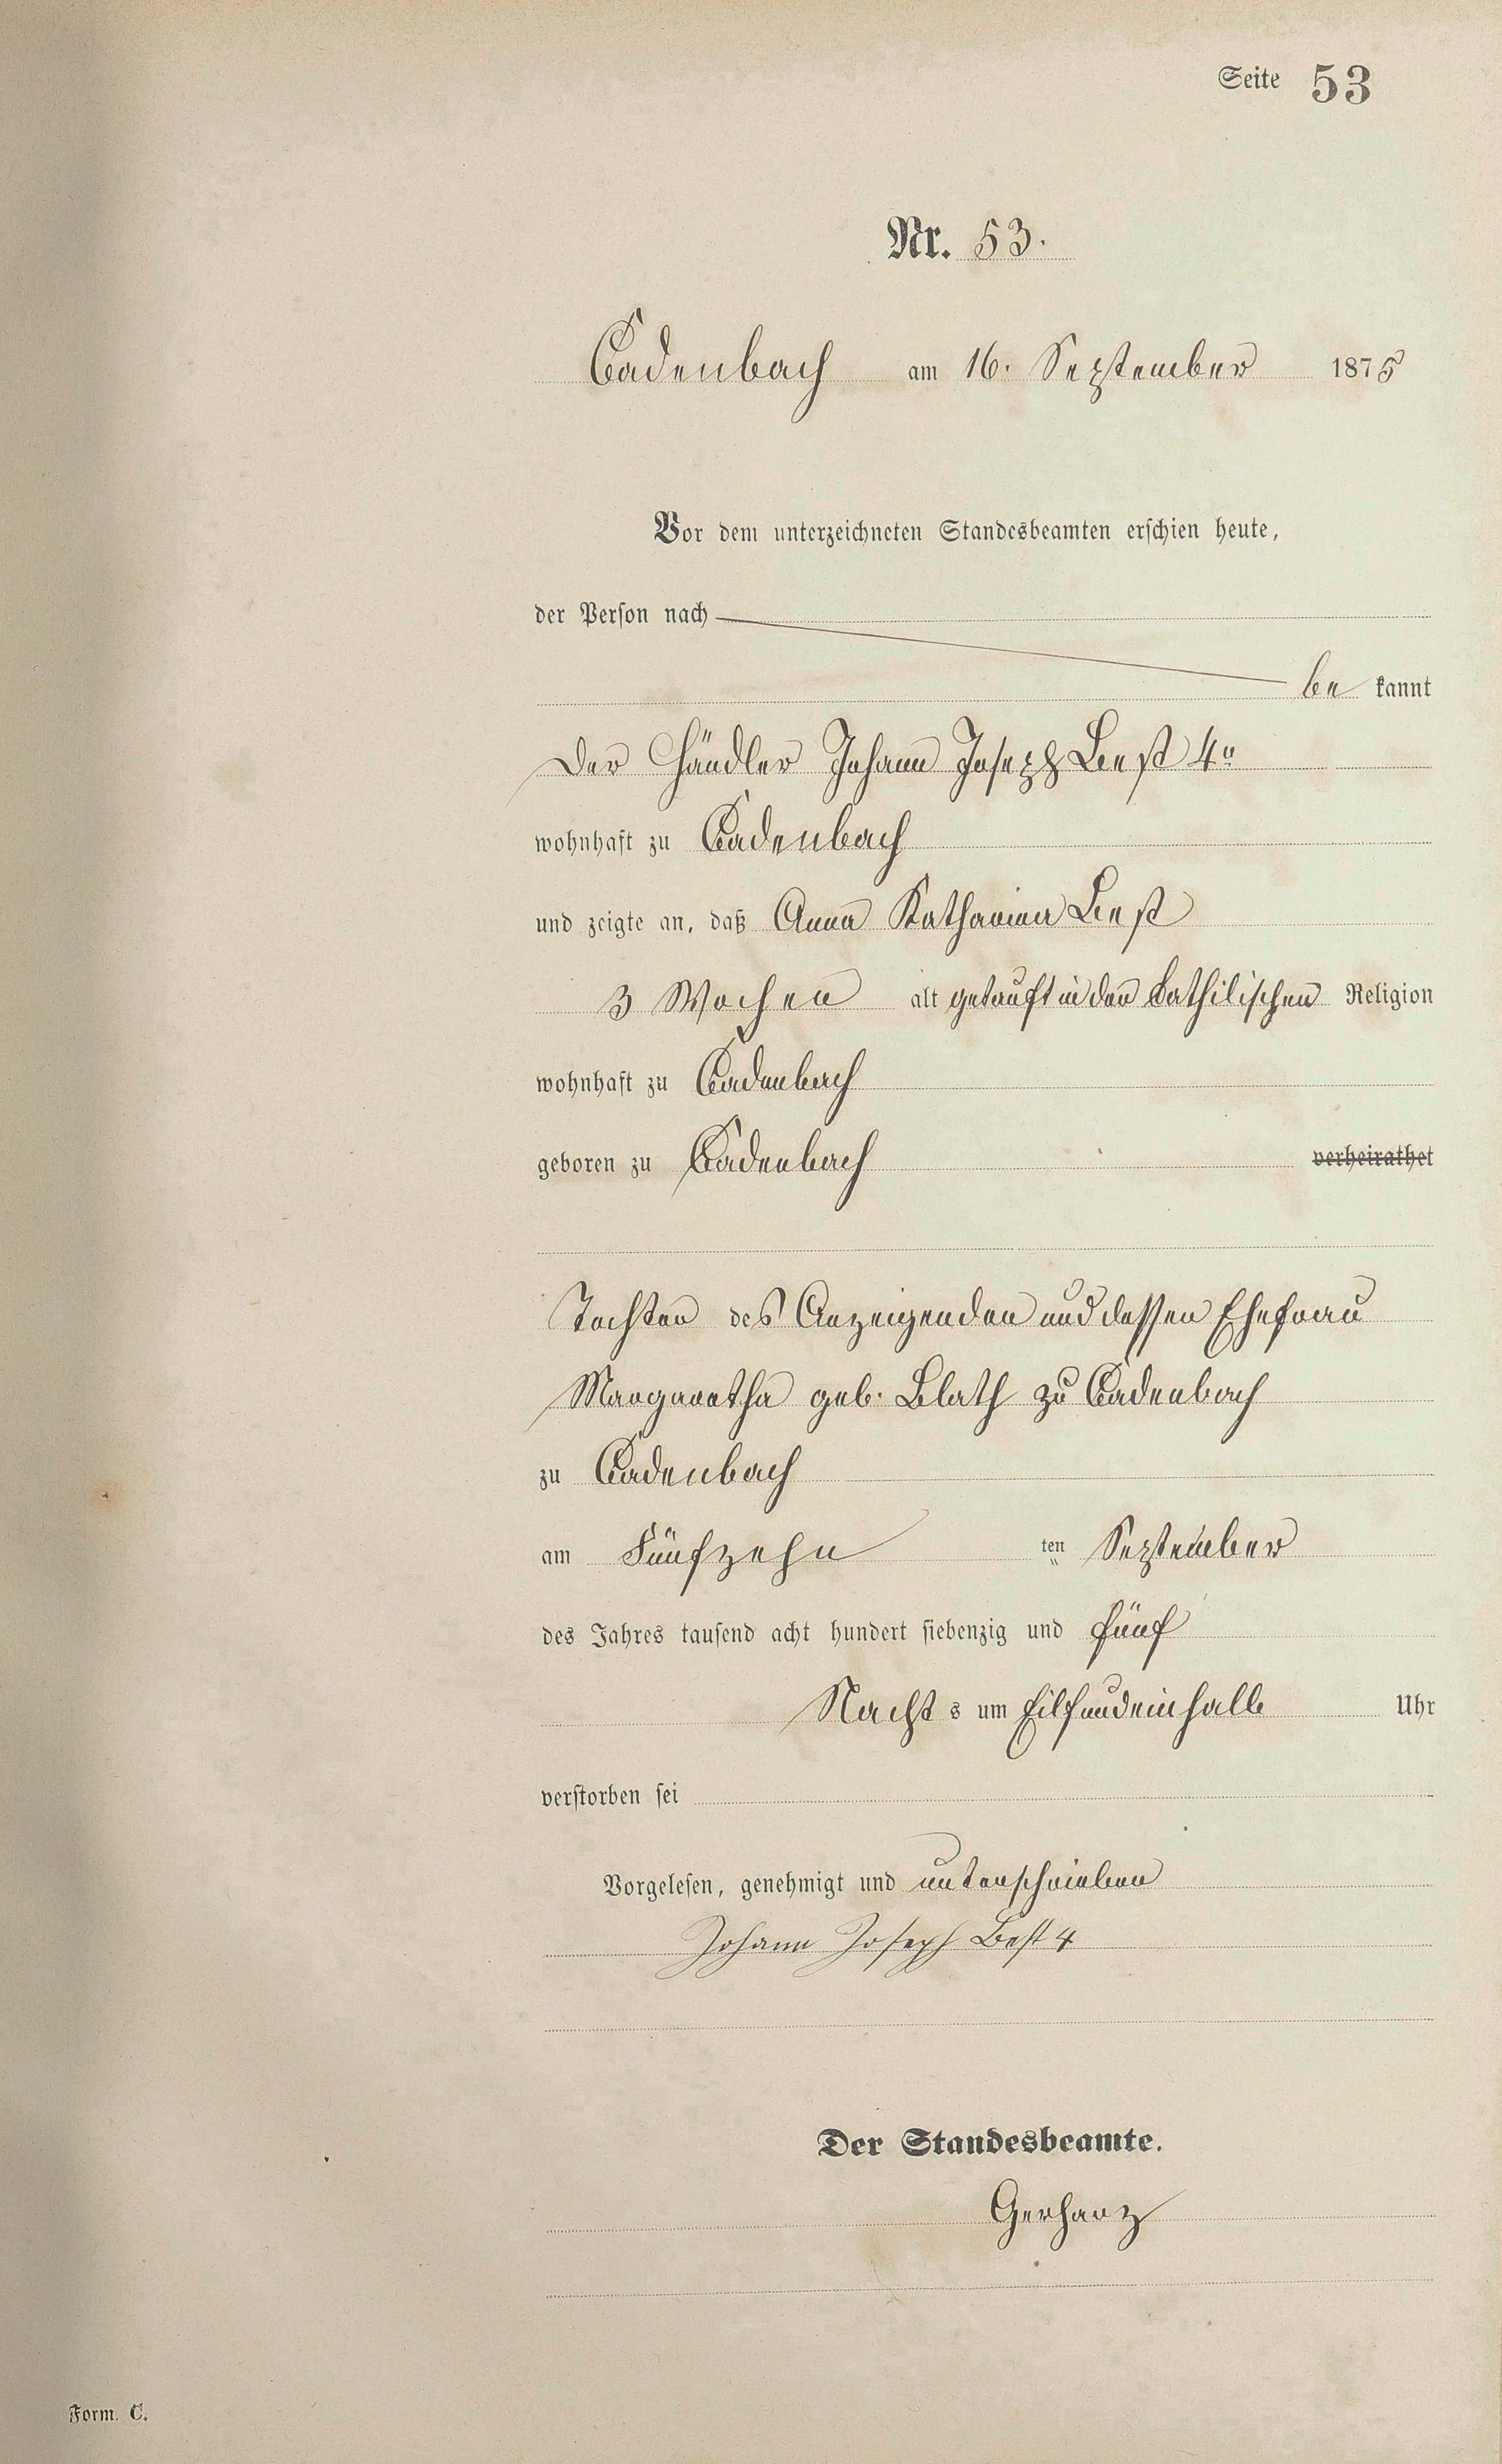 Seite 53
Nr. 53.
Cadenbach am 16. September 1875
Vor dem unterzeichneten Standesbeamten erschien heute,
der Person nach
be kannt
Der Händler Johann Joseph Best 4"
wohnhaft zu Cadenbach
und zeigte an, daß Anna Katharina Best
3 Wochen alt getauft in der kathilischen Religion
wohnhaft zu Cadenbach
geboren zu Cadenbach verheirathet
Tochter des Anzeigenden und dessen Ehefrau
Margaretha geb. Blath zu Cadenbach
zu Cadenbach
am Fünfzehn ten September
des Jahres tausend acht hundert siebenzig und fünf
Nacht s um Eilfundeinhalb Uhr
verstorben sei
Vorgelesen, genehmigt und unterschrieben
Johann Joseph Best 4
Der Standesbeamte.
Gerharz
Form. C.